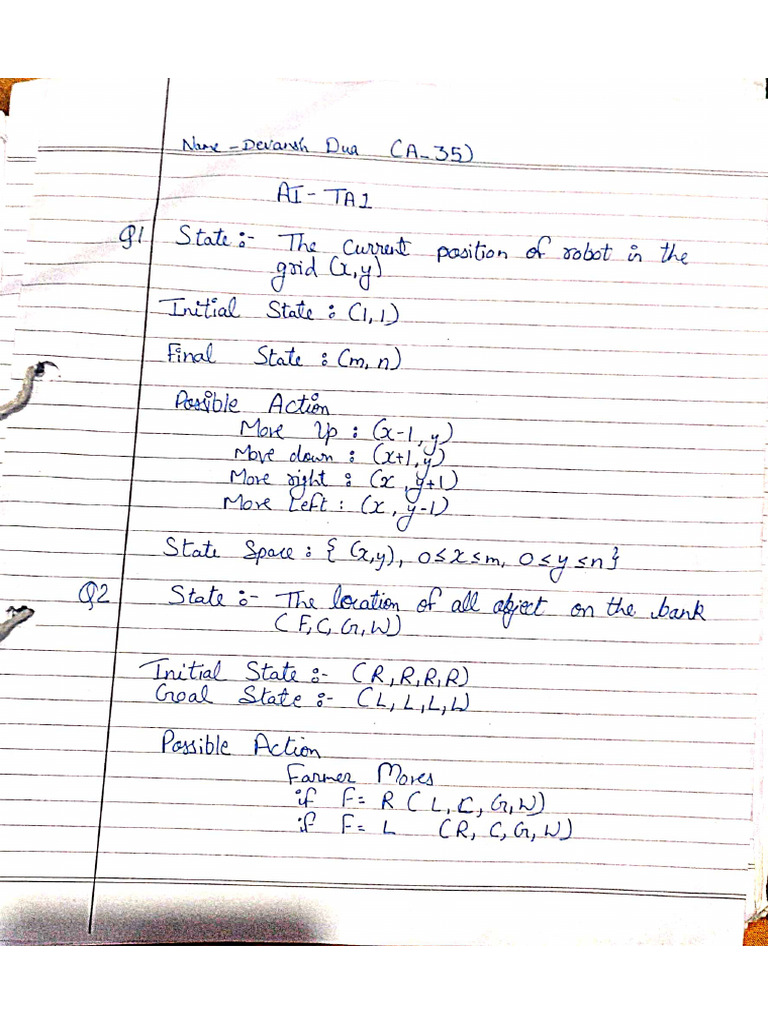 Name - Devansh Dua (A-35)
AI - TA1
Q1 State :- The current position of robot in the
grid (x,y)
Initial State : (1,1)
Final State : (m, n)
Possible Action
Move Up : (x-1, y)
Move down : (x+1, y)
Move right : (x, y+1)
Move Left : (x, y-1)
State Space : { (x,y), 0≤x≤m, 0≤y≤n}
Q2 State :- The location of all object on the bank
(F, C, G, W)
Initial State :- (R, R, R, R)
Goal State :- (L, L, L, L)
Possible Action
Farmer Moves
if F = R (L, C, G, W)
if F = L (R, C, G, W)